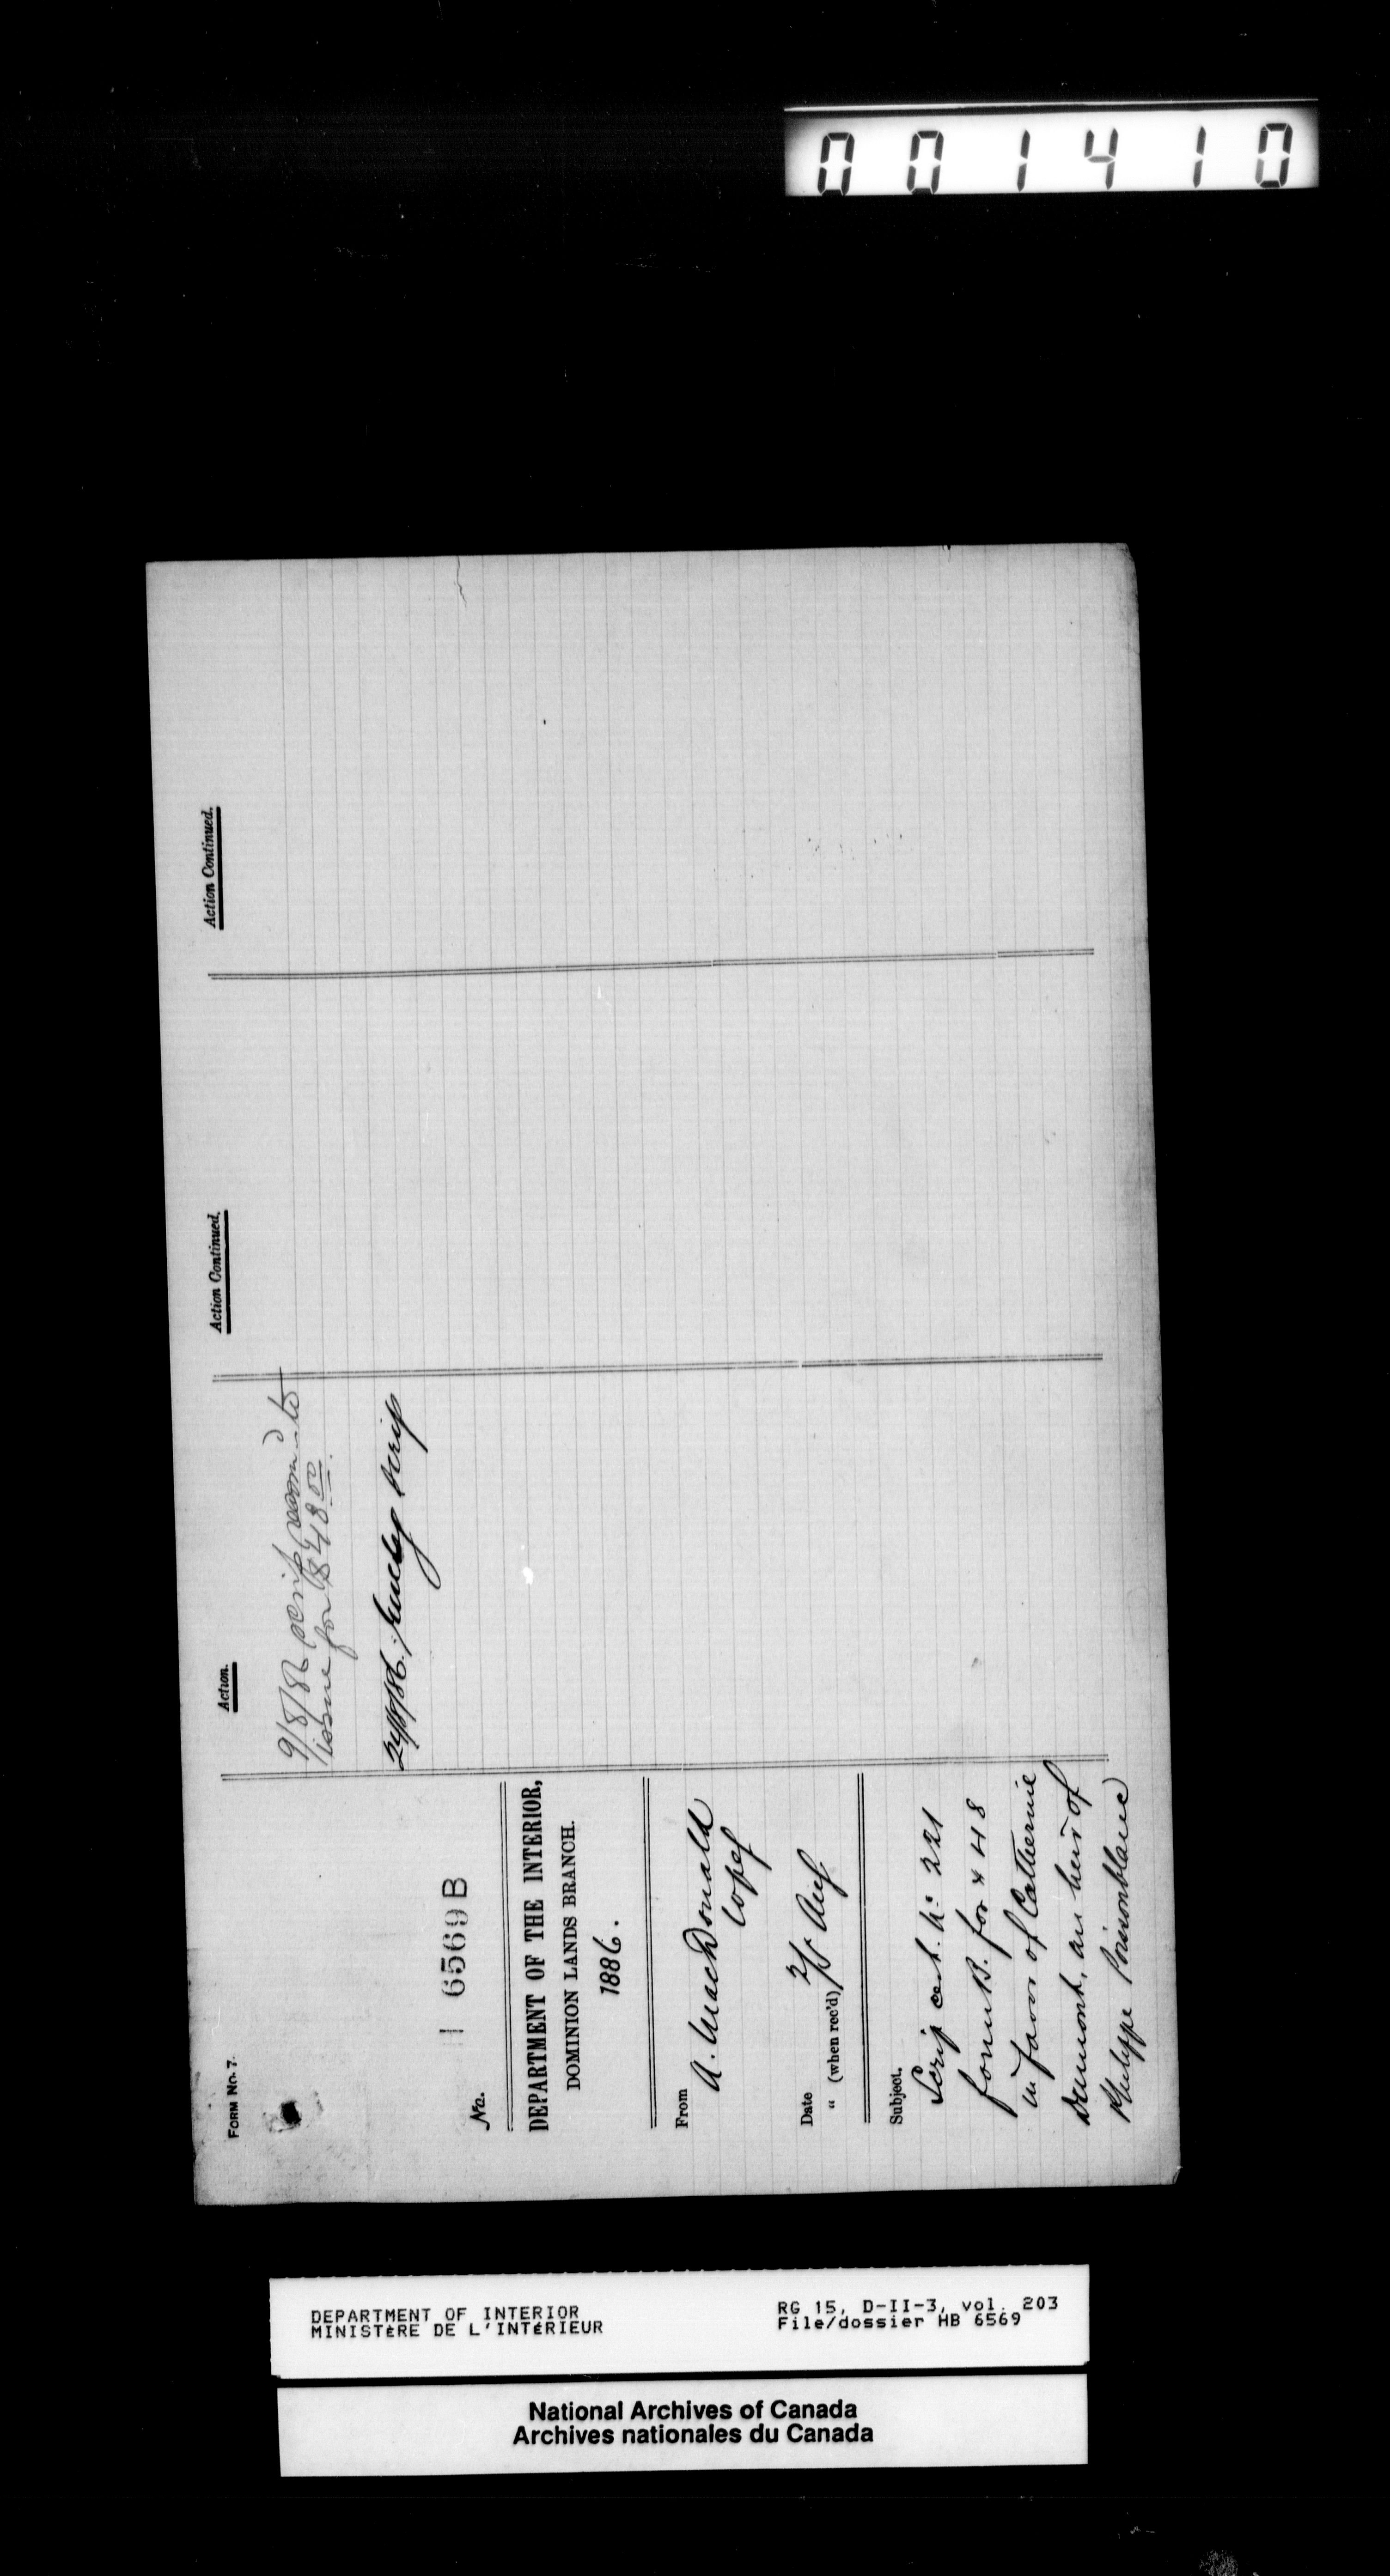 001410
FORM No. 7.
No. 6569 B
DEPARTMENT OF THE INTERIOR,
DOMINION LANDS BRANCH.
1886.
From
A. MacDonald
Date
" (when rec'd) 2/5 Aug
Subject.
Scrip cert. No 221
form B. for $48
in favor of Catherine
Dumont, an heir of
Philippe Poisonblanc
Action.
9/8/86 scrip to
issue for $48.00
24/8/86. scrip
Action Continued.
Action Continued.
DEPARTMENT OF INTERIOR
MINISTÈRE DE L'INTÉRIEUR
RG 15, D-II-3, vol. 203
File/dossier HB 6569
National Archives of Canada
Archives nationales du Canada